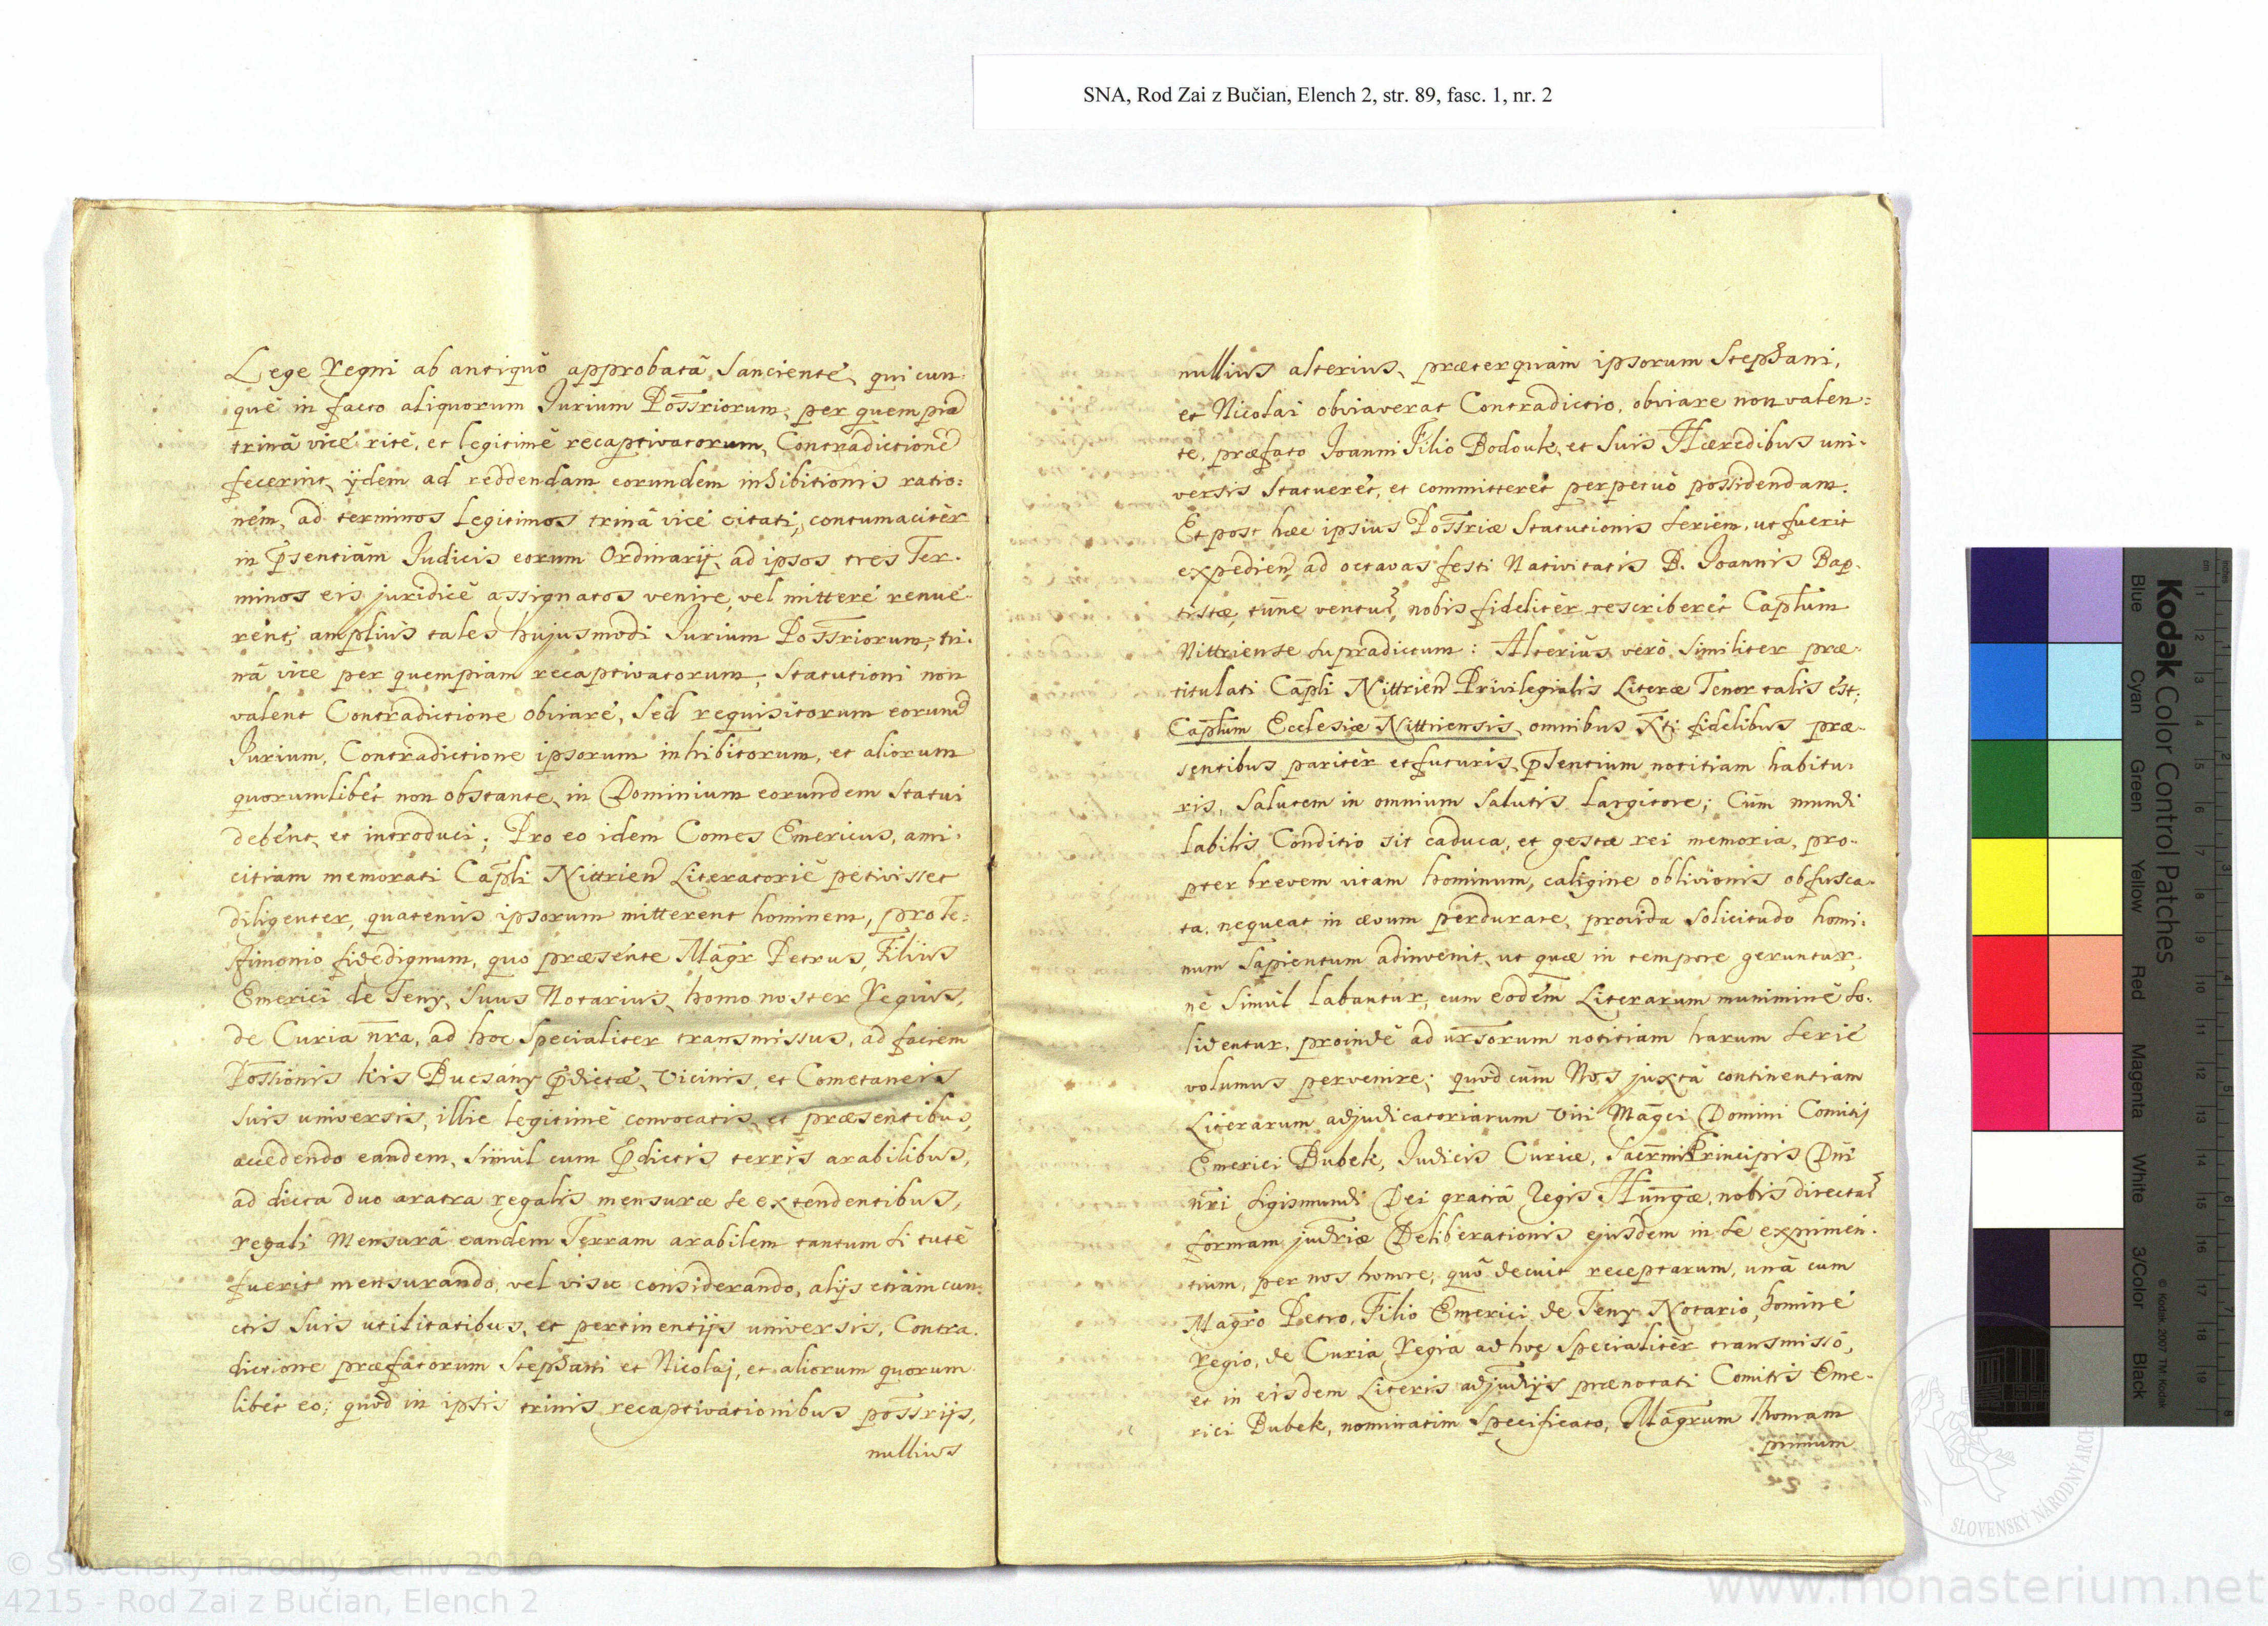 SNA, Rod Zai z Bučian, Elench 2, str. 89, fasc. 1, nr. 2
Lege Regni ab antiquô approbatâ Sanciente, qui cun:
què in facto aliquorum Jurium Poss̄riorum, per quempiā
trinâ vice ritè, et legitimè recaptivatorum, Contradictionē
fecerint, ijdem ad reddendam eorundem inhibitionis ratio:
nem, ad terminos Legitimos trinâ vice citati, contumacitèr
in p̄sentiam Judicis eorum Ordinarij, ad ipsos tres Ter-
minos eis juridicè assignatos venire, vel mittere renue-
rent, ampliùs tales hujusmodi Jurium Poss̄riorum, tri-
nâ vice per quempiam recaptivatorum, Statutioni non
valent Contradictione obviare, Sed requisitorum eorund
Jurium, Contradictione ipsorum inhibitorum, et aliorum
quorumlibet non obstante, in Dominium eorundem Statui
debent, et introduci; Pro eo idem Comes Emericus, ami-
citiam memorati Cap̄li Nittrien Literatoriè petivisset
diligenter, quatenùs ipsorum mitterent hominem, pro Te:
stimonio fidedignum, quo praesente Mag̅r Petrus, Filius
Emerici de Teny, Suus Notarius, homo noster Regius,
de Curia n̅ra, ad hoc Specialiter transmissus, ad faciem
Possionis Kis Bucsany p̄dictae, Vicinis, et Cometaneis
Suis universis, illic legitimè convocatis, et praesentibus,
accedendo eandem, Simùl cum p̄dictis terris arabilibus,
ad dicta duo aratra regalis mensurae se extendentibus,
regali Mensurâ eandem Terram arabilem tantum si tutè
fuerit mensurando, vel visu considerando, alijs etiàm cun:
ctis Suis utilitatibus, et pertinentijs universis, Contra-
dictione praefatorum Stephani et Nicolaj, et aliorum quorum
libet eo; quòd in ipsis trinis recaptivationibus poss̄rijs,
nullius
nullius alterius, praeterquàm ipsorum Stephani,
et Nicolai obviaverat Contradictio, obviare non valen:
te, praefato Joanni Filio Bodouk, et Suis Haeredibus uni-
versis Statueret, et committeret perpetuò possidendam.
Et post haec ipsius Poss̄riae Statutionis Seriem, ut fuerit
expedien, ad octavas festi Nativitatis B. Joannis Bap-
tistae, tūnc ventur, nobis fidelitèr rescriberet Cap̄lum
Nittriense supradictum: Alteriùs verò Similiter prae-
titulati Cap̄li Nittrien Privilegialis Literae Tenor talis est;
Cap̄lum Ecclesiae Nittriensis, omnibus Xti fidelibus prae-
sentibus paritèr et futuris, p̄sentium notitiam habitu-
ris, Salutem in omnium Salutis Largitore; Cùm mundi
labilis Conditio sit caduca, et gestae rei memoria, pro-
pter brevem vitam hominum, caligine oblivionis obfusca-
ta, nequeat in aevum perdurare, provida Solicitudo homi-
num Sapientum adinvenit, ut quae in tempore geruntur,
nè Simùl labantur, cum eodem Literarum munimine so-
lidentur, proindè ad ūrsorum notitiam harum serie
volumus pervenire; quòd cùm Nos juxtà continentiam
Literarum adjudicatoriarum Viri Mag̅ci Domini Comitis
Emerici Bubek, Judicis Curiae, Sacr̄mi Principis Dn̄i
n̄ri Sigismundi Dei gratiâ Regis Hun̄gae, nobis directar
formam jud̄riae Deliberationis ejusdem in se exprimen-
tium, per nos honore, quô decuit receptarum, unâ cum
Mag̅ro Petro, Filio Emerici de Teny Notario, homine
Regio, de Curia Regia ad hoc Specialitèr transmissô,
et in eisdem Literis adjud̄ijs praenotati Comitis Eme-
rici Bubek, nominatim Specificato, Mag̅rum Thomam
primum
KODAK Color Control Patches
Blue Cyan Green Yellow Red Magenta White 3/Color Black
© Kodak, 2007 TM: Kodak
SLOVENSKÝ NÁRODNÝ ARCH
© Slovenský národný archív 2010
4215 - Rod Zai z Bučian, Elench 2
www.monasterium.net